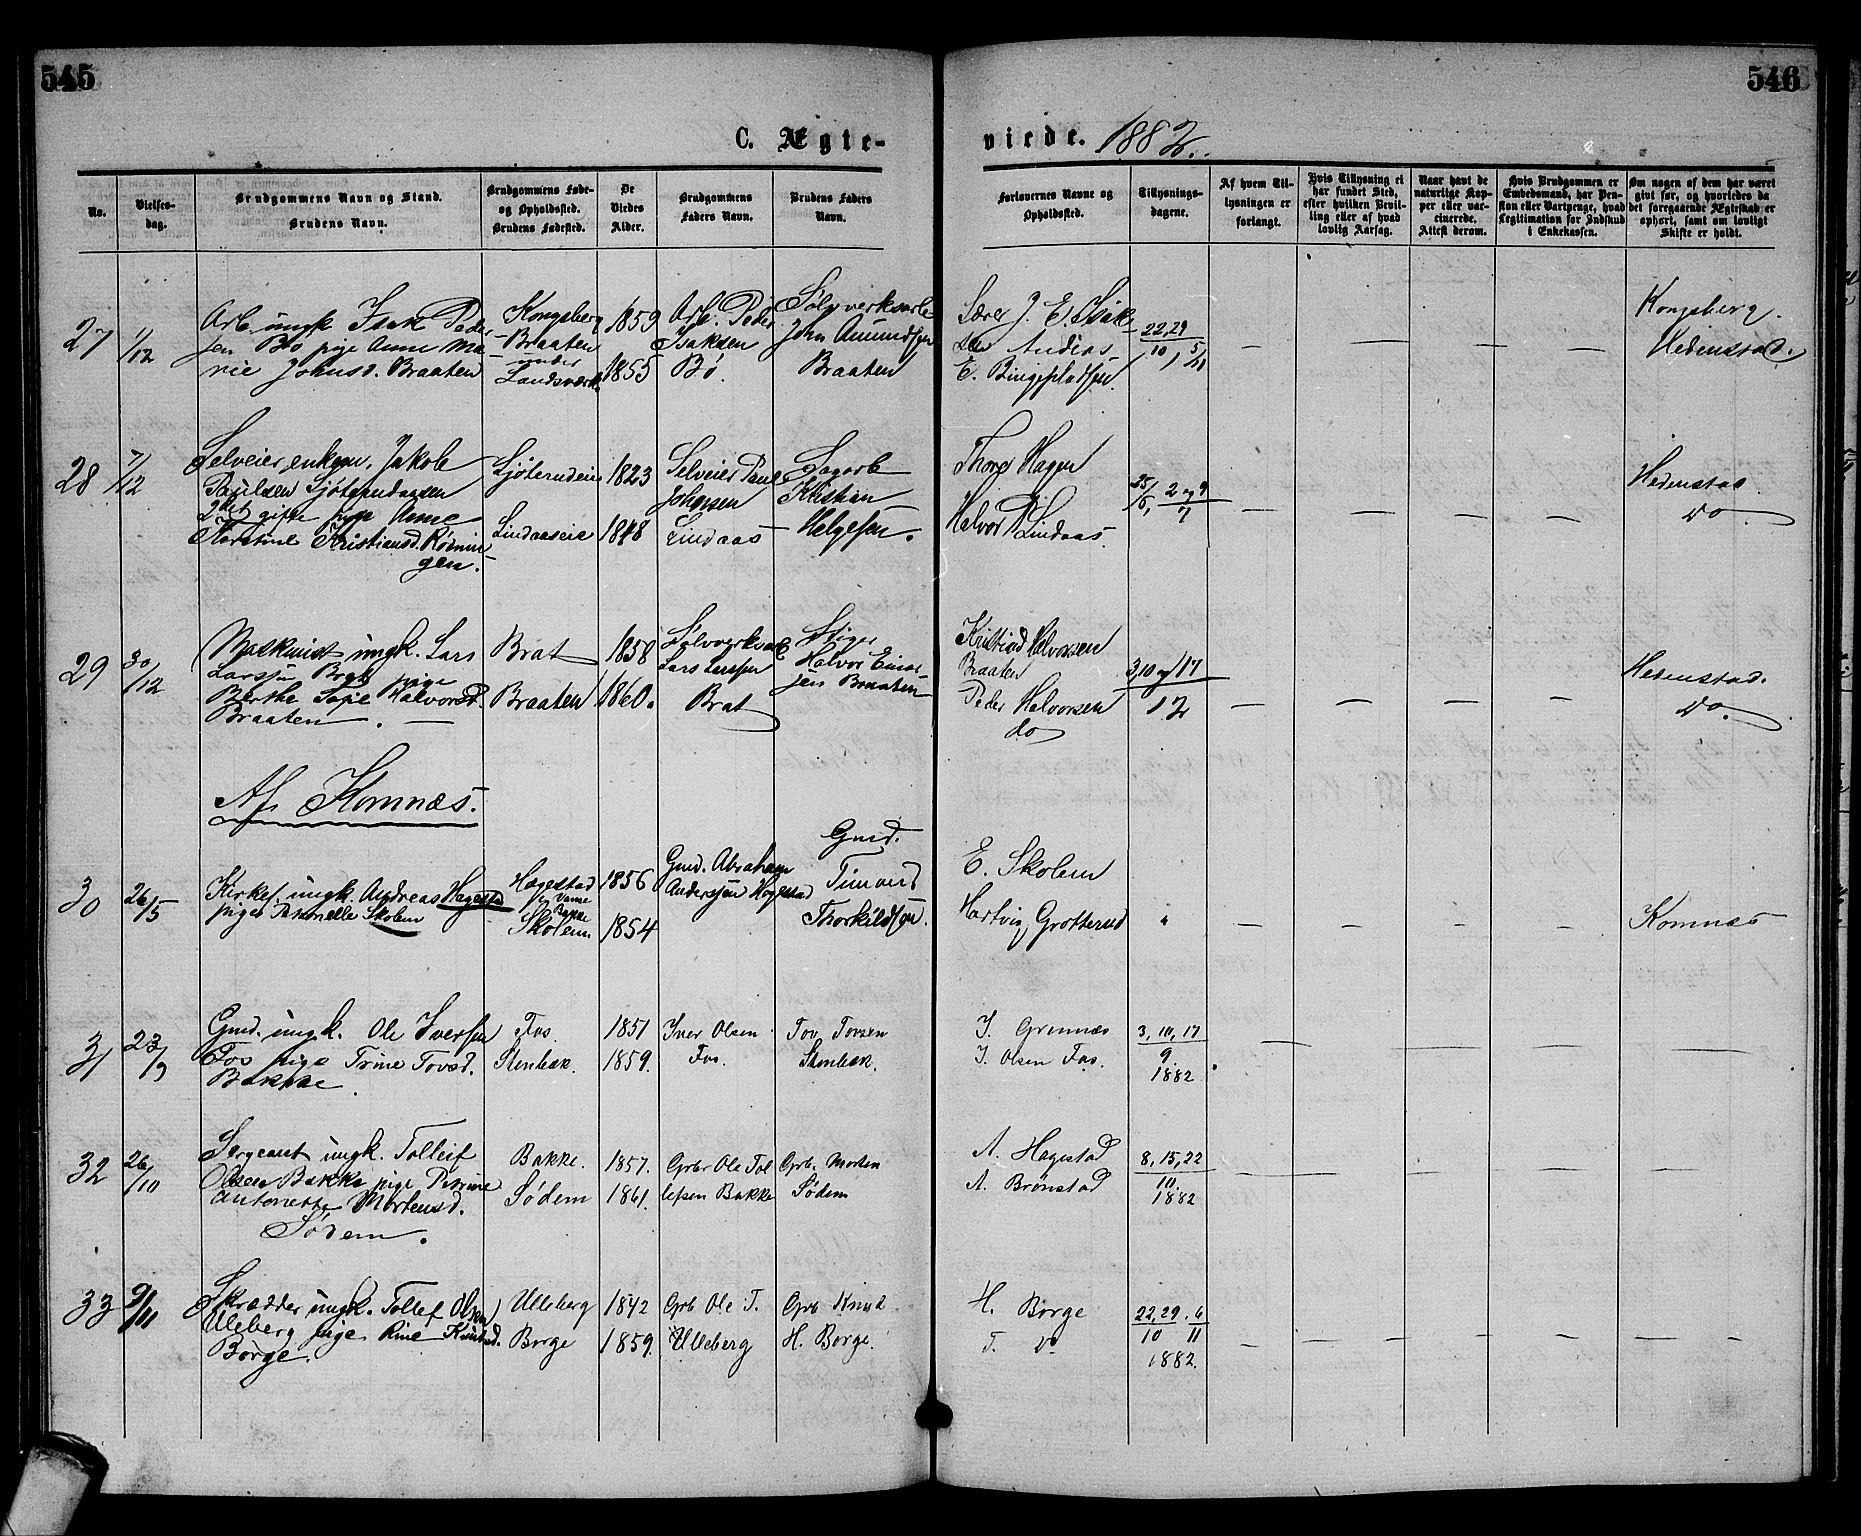 545
546
C. Ægte-
viede. 1882.
No.
Vielses-
dag.
Brudgommens Navn og Stand.
Brudens Navn.
Brudgommens Føde-
og Opholdssted.
Brudens Fødested.
De
Viedes
Alder.
Brudgommens
Faders Navn.
Brudens Faders
Navn.
Forlovernes Navne og
Opholdsted.
Tillysnings-
dagene.
Af hvem Til-
lysningen er
forlangt.
Hvis Tillysning ei
har fundet Sted,
efter hvilken Bevil-
ling eller af hvad
lovlig Aarsag.
Naar havt de
naturlige Kop-
per eller vac-
cinerede.
Attest derom.
Hvis Brudgommen er
Embedsmand, har Pen-
sion eller Vartpenge, hvad
Legitimation for Indskud
i Enkekassen.
Om nogen af dem har været
givt før, og hvorledes da
det foregaaende Ægteskab er
ophørt, samt om lovligt
Skifte er holdt.
27
1/12
Arb. ungk. Isak Peder-
sen Bø pige Anne Ma-
rie Johnsd. Braaten
Kongsberg
Braaten
under
Landsværk
1859
1855
Arb. Peder
Isaksen
Bø.
Sølvverksarb.
John Amundsen
Braaten
Lærer J. E.
Andeas
E. Bingepladsen.
22, 29 5
10 / 11
Kongsberg.
Hedenstad.
28
7/12
Selveier, enkem. Jakob
Paulsen Sjøterudseien
2det gifte pige Anne
Karstine Kristiansd. Rømin-
gen.
Sjøterudeie
Lindaaseie
1823
1848
Selveier Paul
Johnsen
Lindaas
Sagarb
Kristian
Helgesen.
Thore Hagen
Halvor Lindaas.
25/6, 2 og 9
7
Hedenstad
do.
29
30/12
Maskinist ungk. Lars
Larsen Brat pige
Berthe Sofie Halvorsd.
Braaten.
Brat
Braaten
1858
1860.
Sølvverksarb
Lars Larsen
Brat
Stiger
Halvor Einar-
sen Braaten
Kristian Halvorsen
Braaten
Peder Halvorsen
do
3, 10 og 17
12
Hedenstad.
do.
Af Komnæs.
30
26/5
Kirkes. ungk. Andreas Hagestad
pige Pernelle Skolem
Hagestad
Skolem
1856
1854
Gmd. Abraham
Anderssen Hogestad
Gmd.
Timand
Thorkildsen.
E. Skolem
Hartvig Grotterud
Komnæs
31
23/9
Gmd. ungk. Ole Iversen
Fos pige Trine Tovsd.
Bakke.
Fos.
Stenbæk.
1851
1859.
Iver Olsen
Fos.
Tov Tovsen
Stenbæk.
J. Grennæs
J. Olsen Fos.
3, 10, 17
9.
1882
32
26/10
Sergeant ungk. Tolleif
Olsen Bakke pige Petrine
Antonette Mortensd.
Sødem.
Bakke.
Sødem
1857.
1861.
Grbr Ole Tol-
lefsen Bakke
Grb. Morten
Sødem
A. Hagestad
A. Brønstad
8, 15, 22
10.
1882
33
9/11
Skrædder ungk. Tollef Olsen
Ulleberg pige Rine Knutsd.
Borge.
Ulleberg
Borge
1842
1859.
Grb Ole T.
Ulleberg
Grb Knud
H. Borge.
H. Borge
T. do
22, 29. 6
10 11
1882.